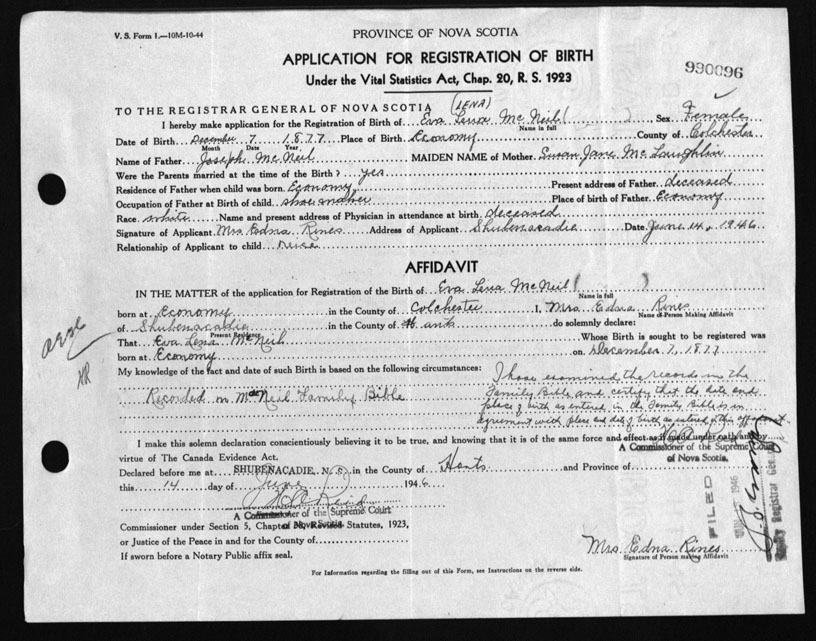 V. S. Form 1.—10M-10-44
PROVINCE OF NOVA SCOTIA
APPLICATION FOR REGISTRATION OF BIRTH
Under the Vital Statistics Act, Chap. 20, R. S. 1923
990096
TO THE REGISTRAR GENERAL OF NOVA SCOTIA (LENA)
I hereby make application for the Registration of Birth of Eva Lena McNeil ( ) Sex Female
Name in full
Date of Birth December 7 1877 Place of Birth Economy County of Colchester
Month Date Year
Name of Father Joseph McNeil MAIDEN NAME of Mother Susan Jane McLaughlin
Were the Parents married at the time of the Birth? yes
Residence of Father when child was born Economy Present address of Father deceased
Occupation of Father at Birth of child shoe maker Place of birth of Father Economy
Race white Name and present address of Physician in attendance at birth deceased
Signature of Applicant Mrs Edna Rines Address of Applicant Shubenacadie Date June 14, 1946
Relationship of Applicant to child neice
AFFIDAVIT
IN THE MATTER of the application for Registration of the Birth of Eva Lena McNeil ( )
Name in full
born at Economy in the County of Colchester I, Mrs Edna Rines
Name of Person Making Affidavit
of Shubenacadie in the County of Hants do solemnly declare:
Present Residence
That Eva Lena McNeil Whose Birth is sought to be registered was
born at Economy on December 7, 1877
My knowledge of the fact and date of such Birth is based on the following circumstances:
Recorded in McNeil Family Bible
I have examined the records in the
Family Bible and certify that the date and
place of birth as entered in the Family Bible is in
agreement with place and date of birth as entered in this affidavit.
I make this solemn declaration conscientiously believing it to be true, and knowing that it is of the same force and effect as if made under oath and by
virtue of The Canada Evidence Act.
A Commissioner of the Supreme Court
of Nova Scotia.
Declared before me at SHUBENACADIE, N. S. in the County of Hants and Province of
this 14 day of June 1946
A Commissioner of the Supreme Court
of Nova Scotia.
Commissioner under Section 5, Chapter 38, Revised Statutes, 1923,
or Justice of the Peace in and for the County of
If sworn before a Notary Public affix seal.
FILED
1946
Deputy Registrar General
Mrs Edna Rines
Signature of Person making Affidavit
For Information regarding the filling out of this Form, see Instructions on the reverse side.